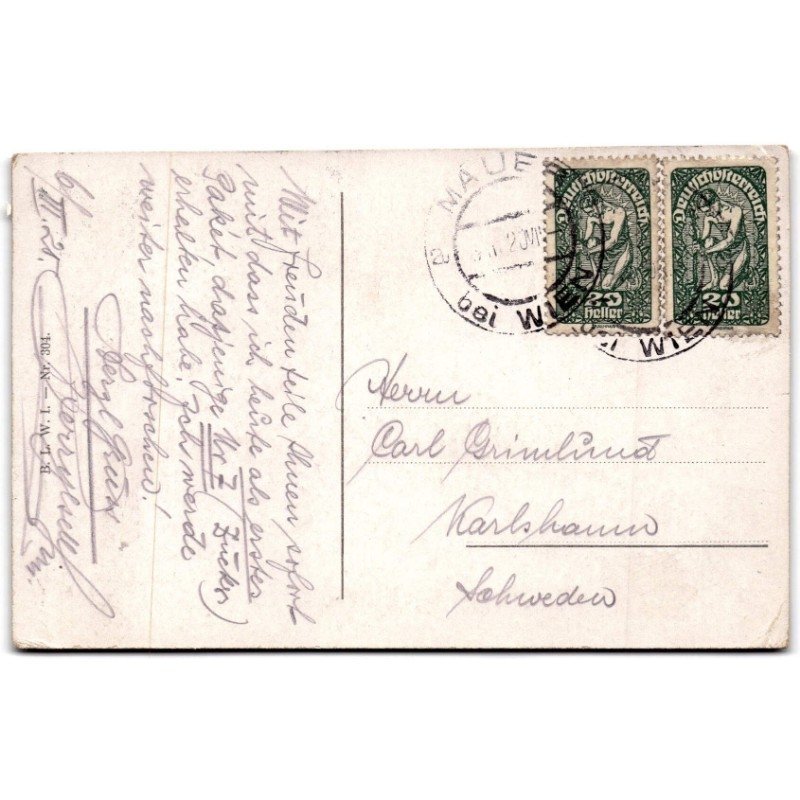 Mit Freuden teile Ihnen sofort
mit dass ich heute als erster
Paket dasjenige Nr I (Zucker)
erhalten habe. Ich werde
weiter nachforschen!
Herzl Gruss
6/III. 20.
B. L. W. I. – Nr. 304.
MAUE
bei WIEN
Deutschösterreich
20
Heller
Deutschösterreich
20
Heller
bei WIE
Herrn
Carl Grimlund
Karlshamn
Schweden